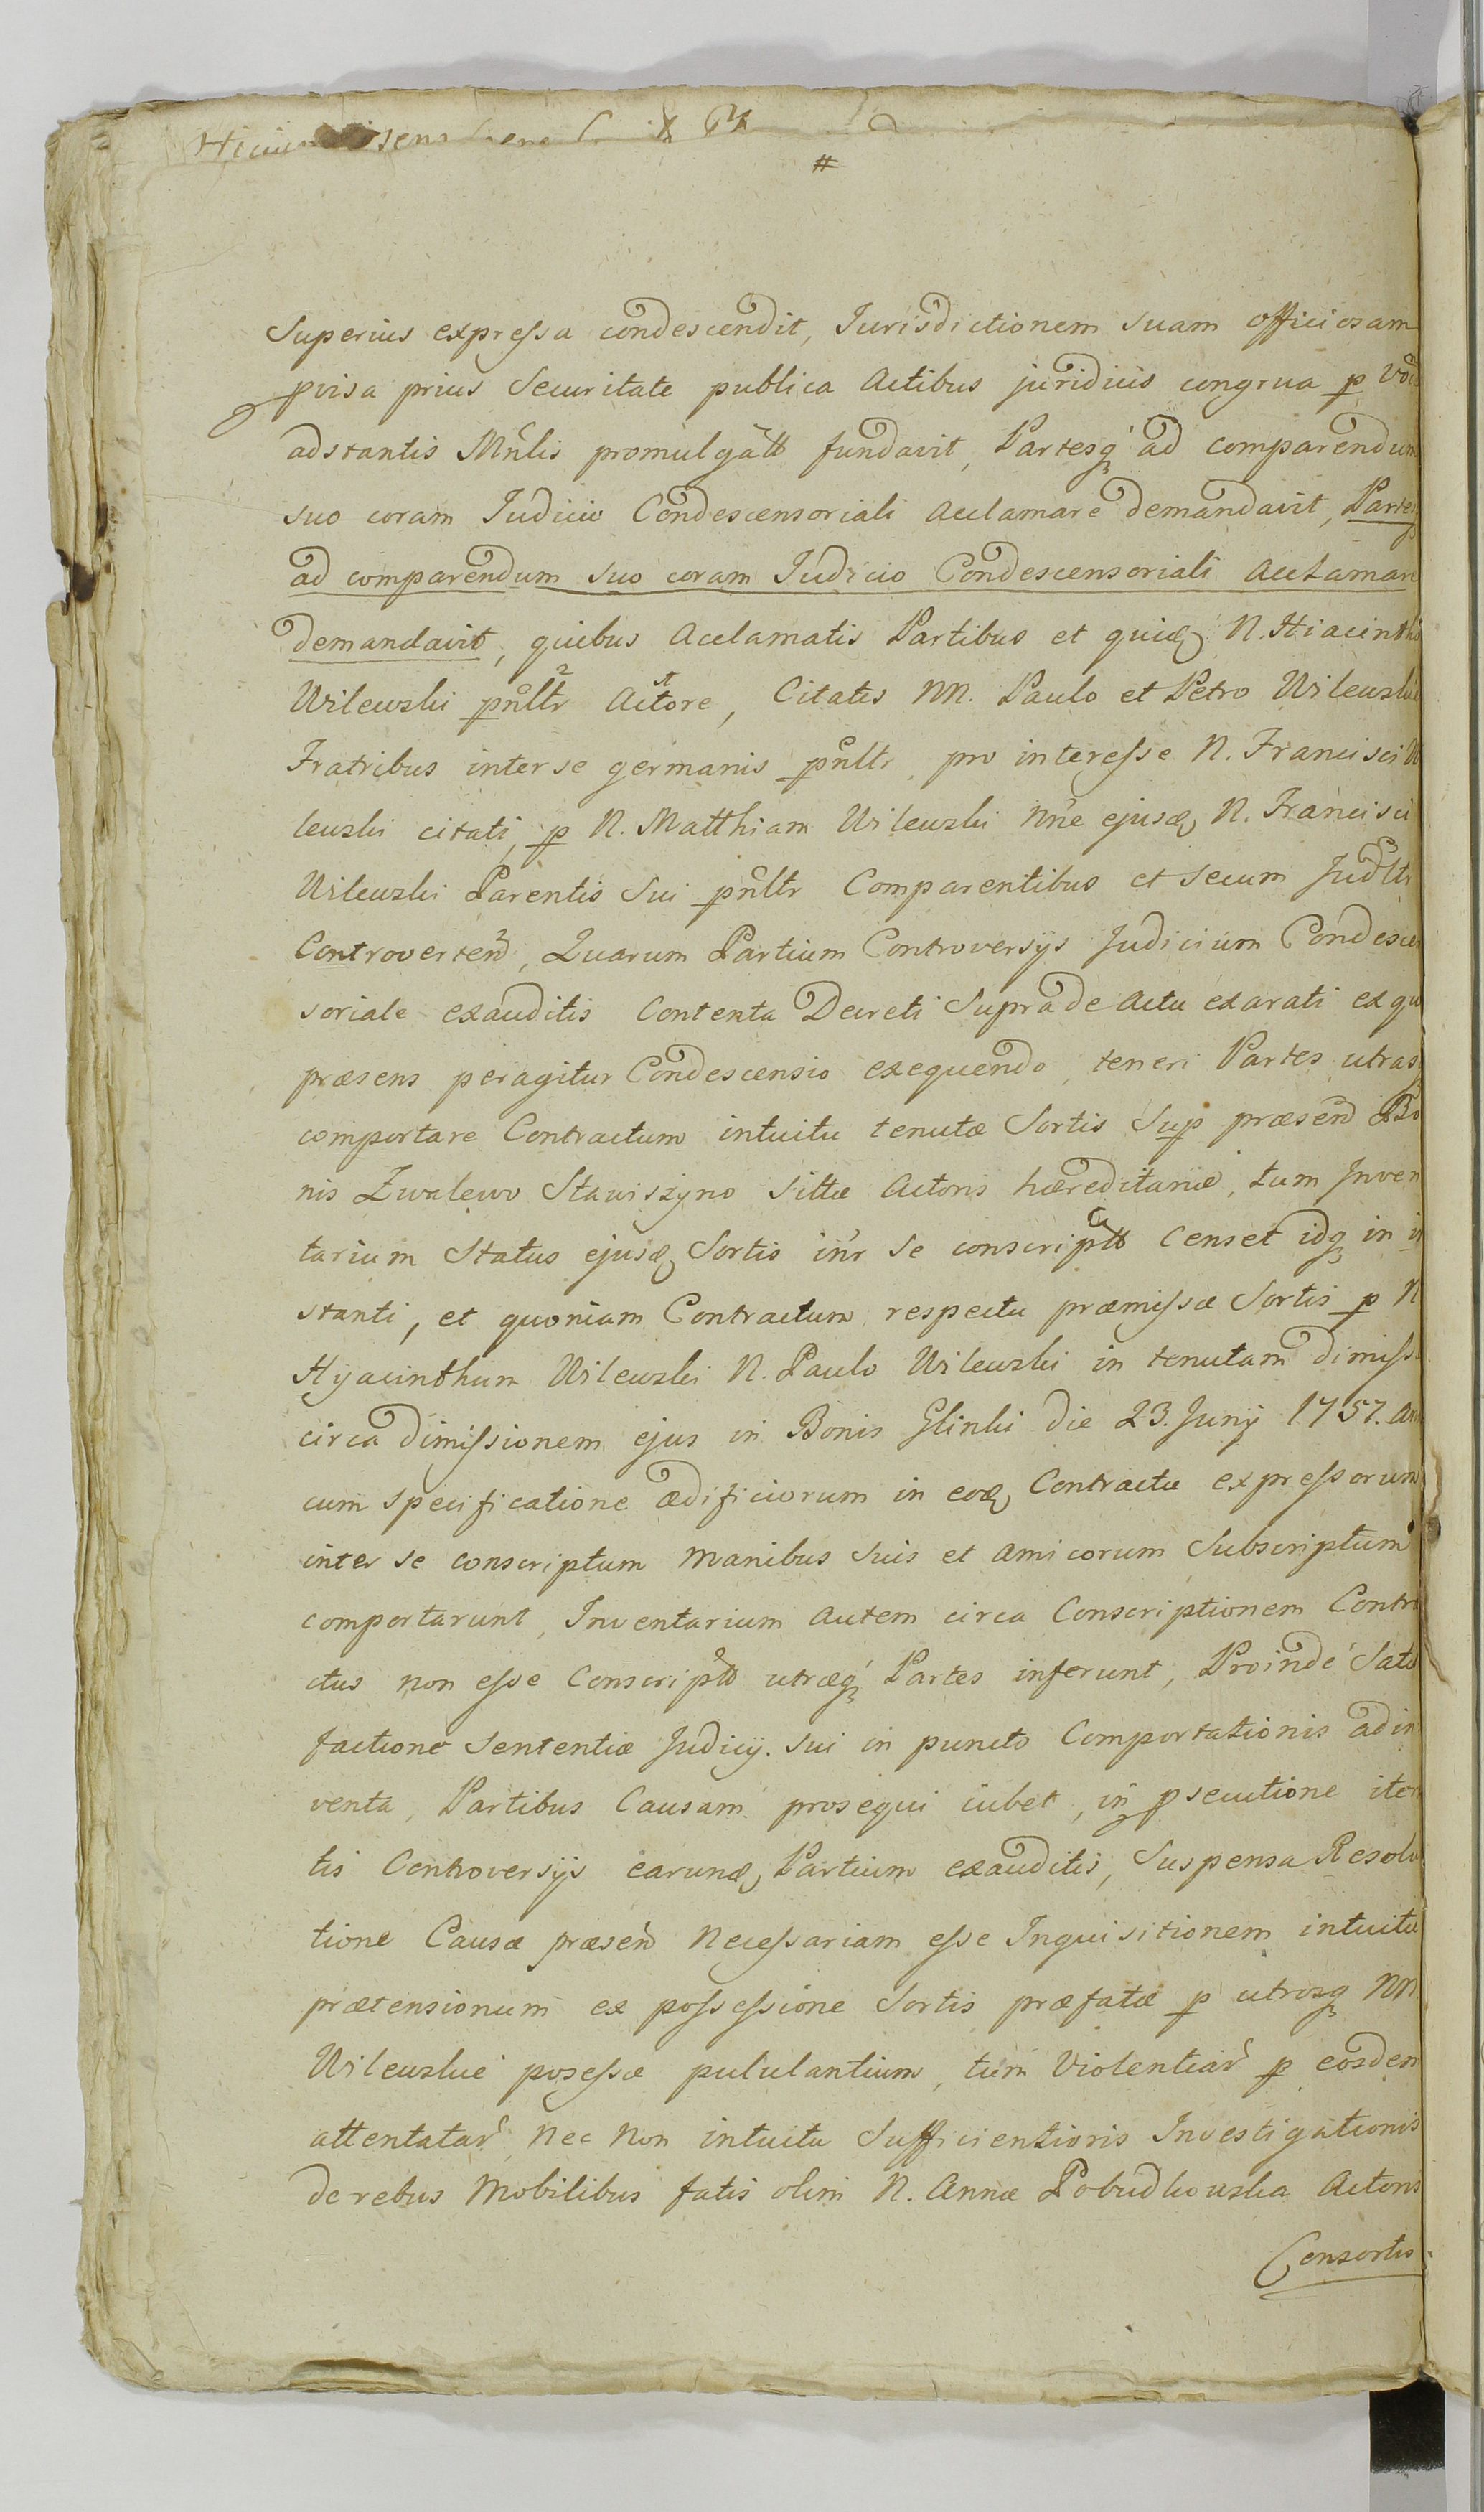 #
Superius expressa condescendit, Jurisdictionem suam officiosam
pvisa prius Securitate publica Actibus juridicis congrua p
adstantis Mnlis promulgatt fundavit, Partesq ad comparendum
suo coram Judicio Condescensoriali acclamare demandavit, Partes
ad comparendum suo coram Judicio Condescensoriali acclamare
demandavit, quibus Acclamatis Partibus et quid N. Hiacintho
Wilewski pnltr Actore, Citatis NN. Paulo et Petro Wilewski
Fratribus inter se germanis pnltr, pro interesse N. Francisci Wi
lewski citati, p N. Matthiam Wilewski nne ejusd N. Francisci
Wilewski Parentis Sui pnltr Comparentibus et secum Judltr
Controverten, Quarum Partium Controversijs Judicium Condescen
soriale exauditis Contenta Decreti Supra de actu exarati ex quo
præsens peragitur Condescensio exequendo, teneri Partes utrasq
comportare Contractum intuitu tenutæ Sortis Sup præsen Bo
nis Zwalewo Stawiszyno Sittæ Actoris hæreditariæ, tum Inven
tarium Status ejusd Sortis inr se conscriptt Censet idq in in
stanti, et quoniam Contractum respectu præmissæ Sortis p N
Hyacinthum Wilewski N. Paulo Wilewski in tenutam dimissæ
circa dimissionem ejus in Bonis Glinki die 23. Junij 1757. An
cum specificatione ædificiorum in eod Contractu expressorum
inter se conscriptum manibus suis et amicorum Subscriptum
comportarunt, Inventarium autem circa Conscriptionem Contra
ctus non esse Conscriptt utræq Partes inferunt, Proinde Satis
factione Sententiæ Judicij sui in puncto Comportationis adin
venta, Partibus Causam prosequi iubet, in q psecutione itera
tis Controversijs earund Partium exauditis, Suspensa Resolu
tione Causæ præsen Necessariam esse Inquisitionem intuitu
prætensionum ex possessione Sortis præfatæ p utrosq NN
Wilewskie posessæ pululantium, tum Violentiar p eosdem
attentatar nec non intuitu Sufficientioris Investigationis
de rebus Mobilibus fatis olim N. Annæ Pobudkowska Actoris
Consortis